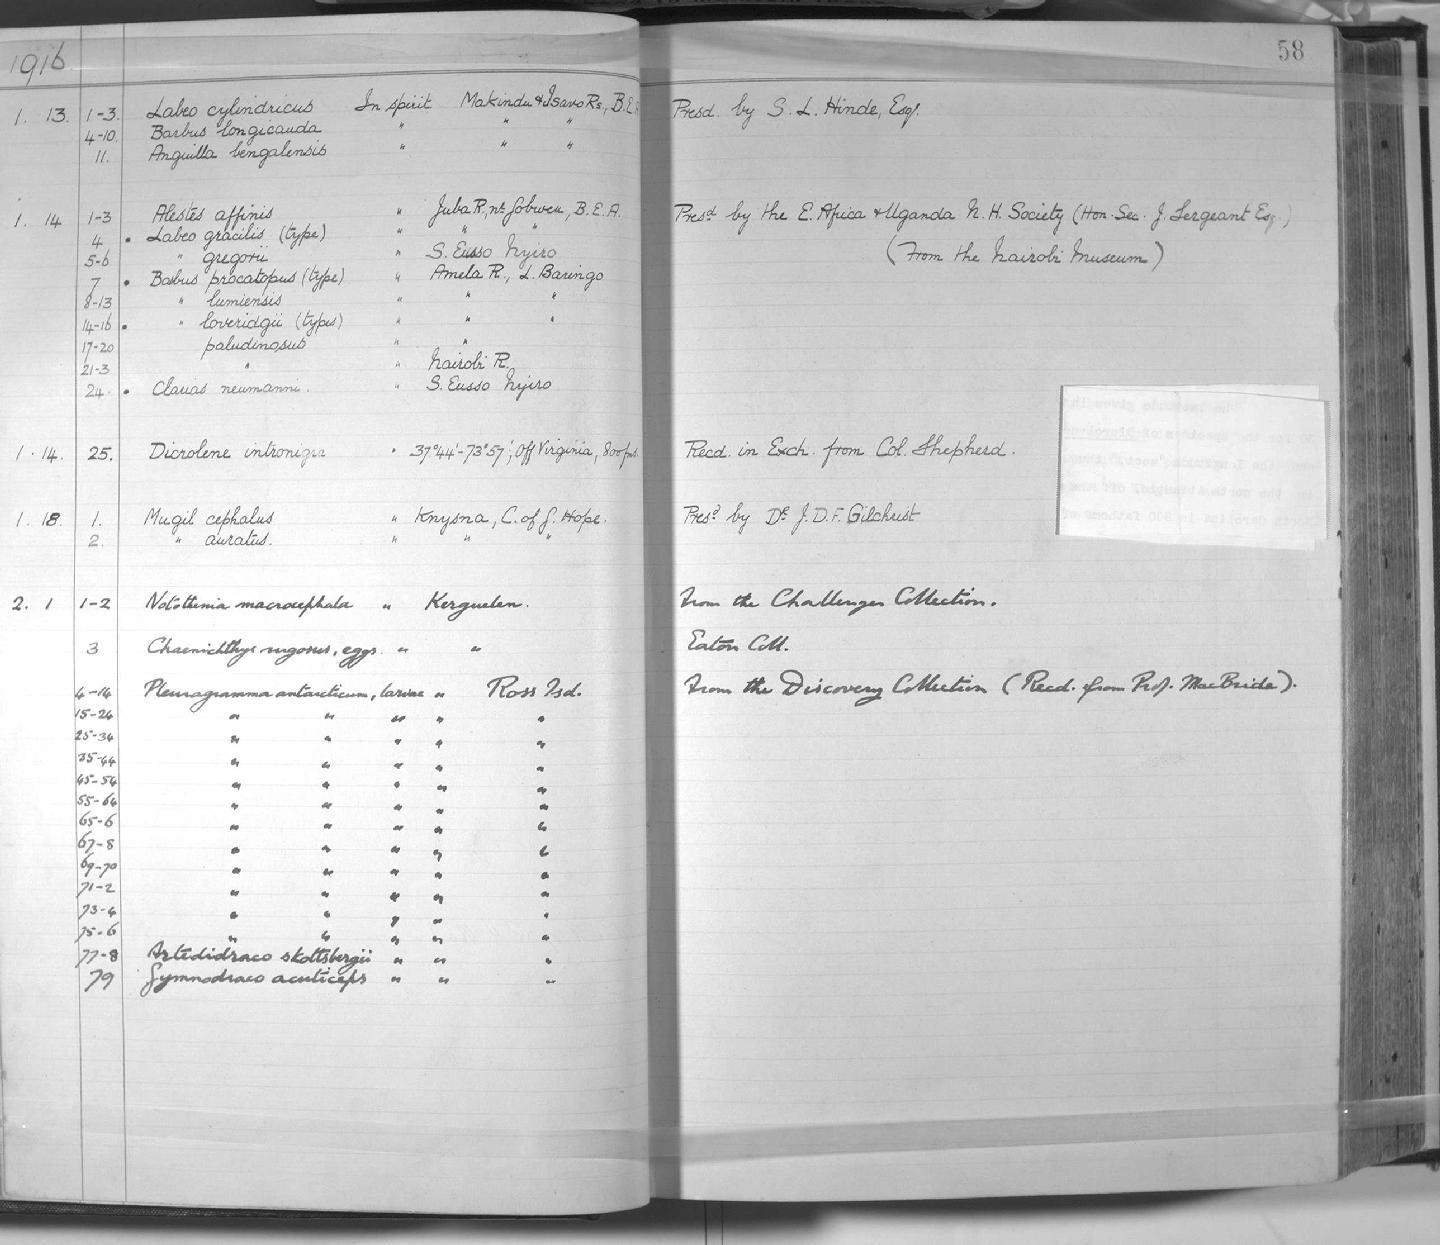 1916
58
1. 13. 1-3. Labeo cylindricus In spirit Makindu & Tsavo Rs, B.E. Presd. by S. L. Hinde, Esq.
4-10. Barbus longicauda " " "
11. Anguilla bengalensis " " "
1. 14 1-3 Alestes affinis " Juba R, nr. Gobwen, B.E.A. Presd by the E. Africa & Uganda N. H. Society (Hon. Sec. J. Sergeant Esq.)
4 • Labeo gracilis (type) " " "
5-6 " gregorii " S. Eusso Nyiro (From the Nairobi Museum)
7 • Barbus procatopus (type) " Amela R., L. Baringo
8-13 " lumiensis " " "
14-16 • " loveridgii (types) " " "
17-20 paludinosus " "
21-3 " " Nairobi R.
24. • Clarias neumanni. " S. Eusso Nyiro
1. 14. 25. Dicrolene intronigra " 37°44'-73°57', Off Virginia, 800 fms. Recd. in Exch. from Col. Shepherd.
1. 18. 1. Mugil cephalus " Knysna, C. of G. Hope. Presd by Dr. J.D.F. Gilchrist
2. " auratus. " " "
2. 1 1-2 Notothenia macrocephala " Kerguelen. From the Challenger Collection.
3 Chaenichthys rugosus, eggs. " " Eaton Coll.
4-14 Pleuragramma antarcticum, larvae " Ross Isd. From the Discovery Collection (Recd. from Prof. MacBride).
15-24 " " " " "
25-34 " " " " "
35-44 " " " " "
45-54 " " " " "
55-64 " " " " "
65-6 " " " " "
67-8 " " " " "
69-70 " " " " "
71-2 " " " " "
73-4 " " " " "
75-6 " " " " "
77-8 Artedidraco skottsbergii " " "
79 Gymnodraco acuticeps " " "